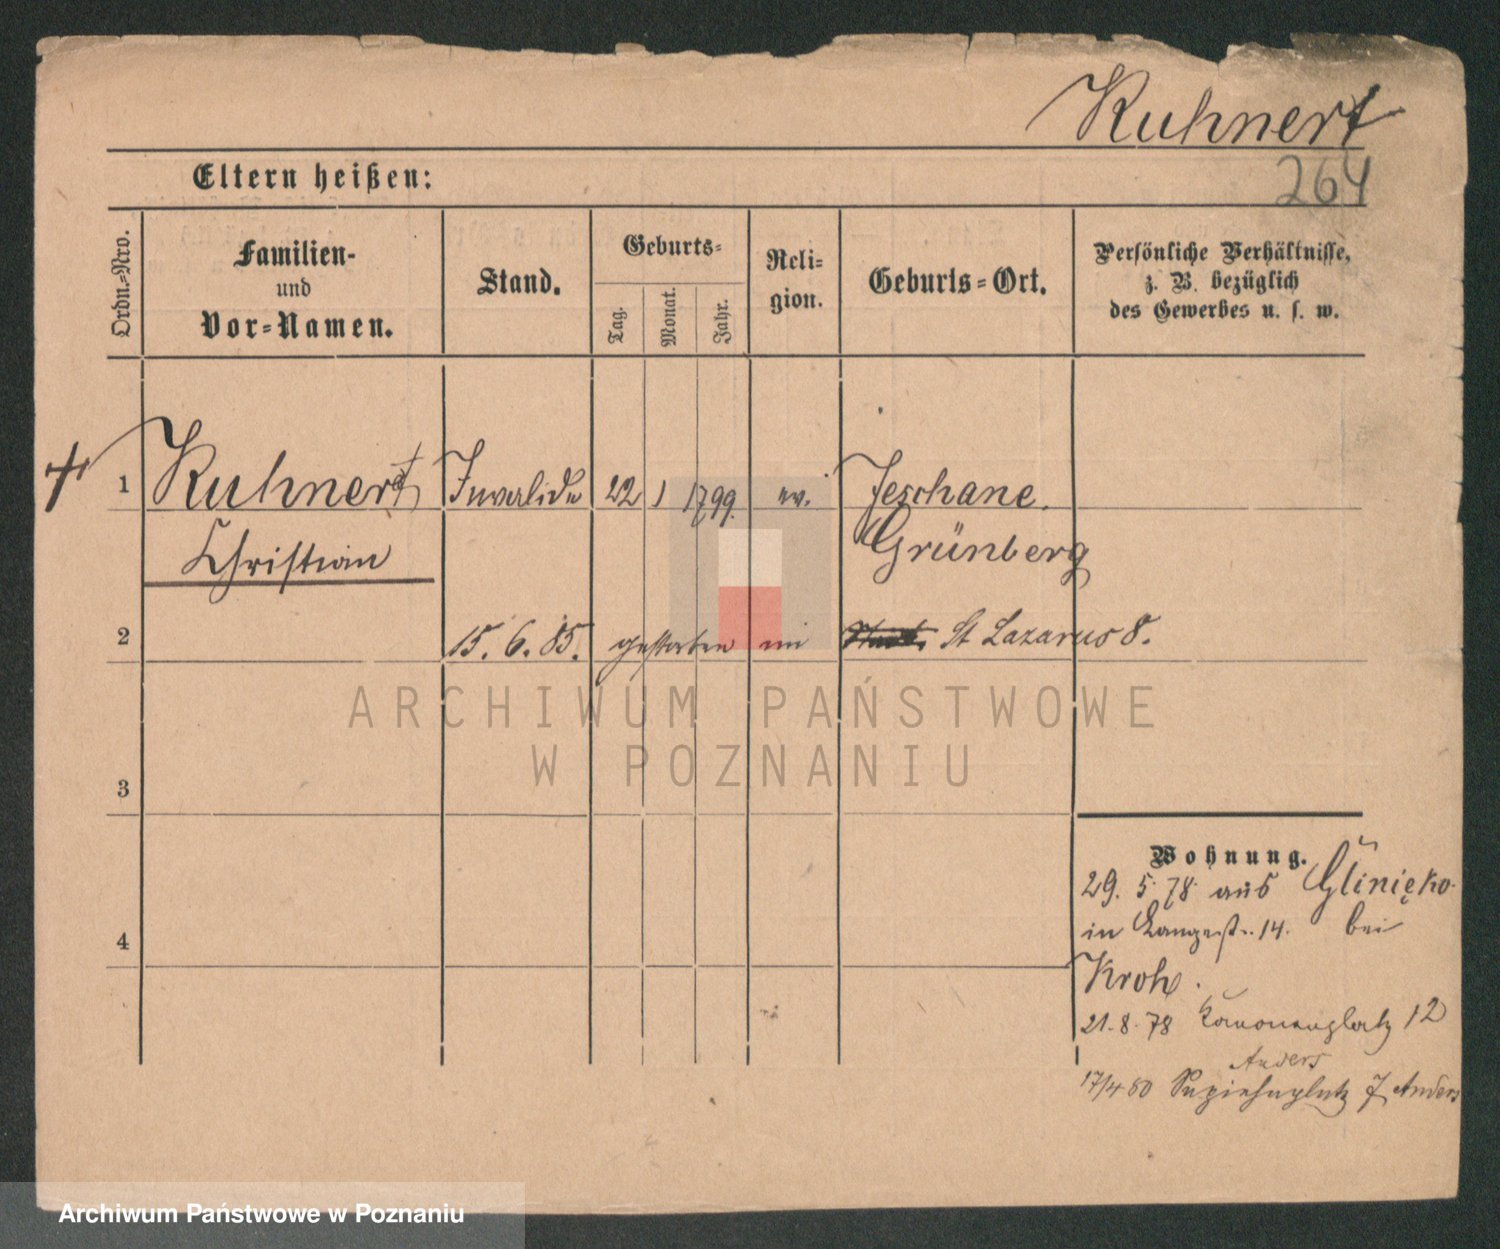 Kuhnert
264
Eltern heißen:
Ordn.-Nro.
Familien-
und
Vor-Namen.
Stand.
Geburts-
Tag.
Monat.
Jahr.
Reli-
gion.
Geburts-Ort.
Persönliche Verhältnisse,
z. B. bezüglich
des Gewerbes u. s. w.
1 Kuhnert Invalide 22 1 1799. ev. Jeschane.
Christian Grünberg
2 15. 6. 85. gestorben im St Lazarus 8.
ARCHIWUM PAŃSTWOWE
W POZNANIU
3
Wohnung.
29. 5. 78 aus Glinięko
in Langestr. 14. bei
4
Kroh.
21. 8. 78 Kanonenplatz 12
Anders
17/4 80 Sapiehaplatz 7 Anders
Archiwum Państwowe w Poznaniu